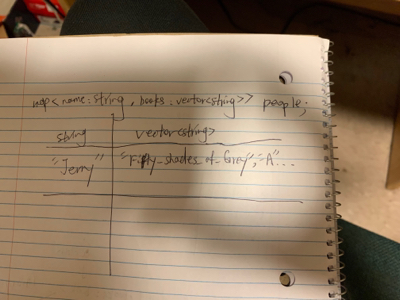 map<name:string, books:vector<string>> people;
string vector<string>
"Jerry" "Fifty-shades-of-Grey", "A"...